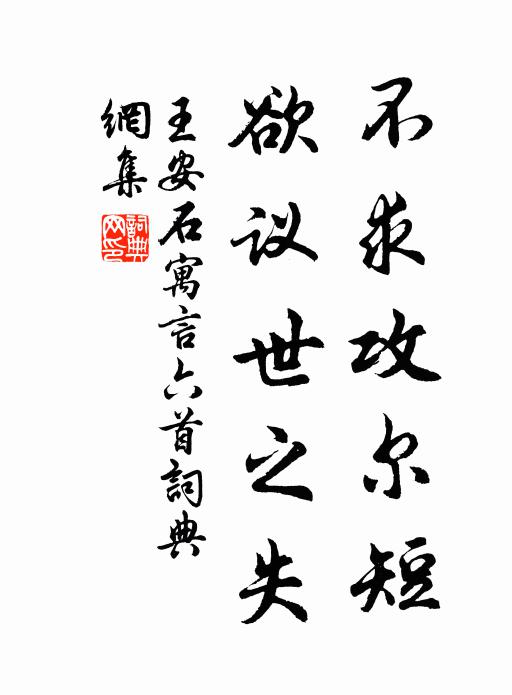 不求攻尔短
欲议世之失
王安石寓言六首詞典
網集
詞典
网印